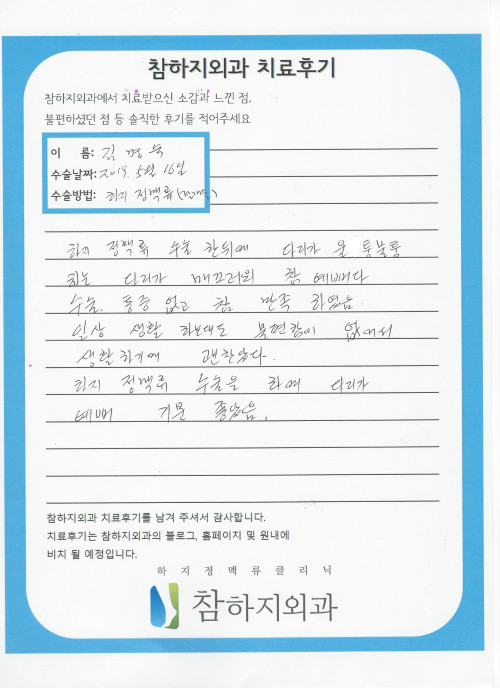 참하지외과 치료후기
참하지외과에서 치료받으신 소감과 느낀 점,
불편하셨던 점 등 솔직한 후기를 적어주세요
이 름: 김경숙
수술날짜: 2019. 5월 16일
수술방법: 하지 정맥류
하지 정맥류 수술 한뒤에 다리가 울퉁불퉁
다리가 매끄러워 참 예쁘다
수술. 통증 없고 참 만족 하였음.
일상 생활 하는데도 불편함이 없어서
생활하기에 괜찬았다.
하지 정맥류 수술을 하여 다리가
예뻐 기분 좋았음.
참하지외과 치료후기를 남겨 주셔서 감사합니다.
치료후기는 참하지외과의 블로그, 홈페이지 및 원내에
비치 될 예정입니다.
하지정맥류클리닉
참하지외과